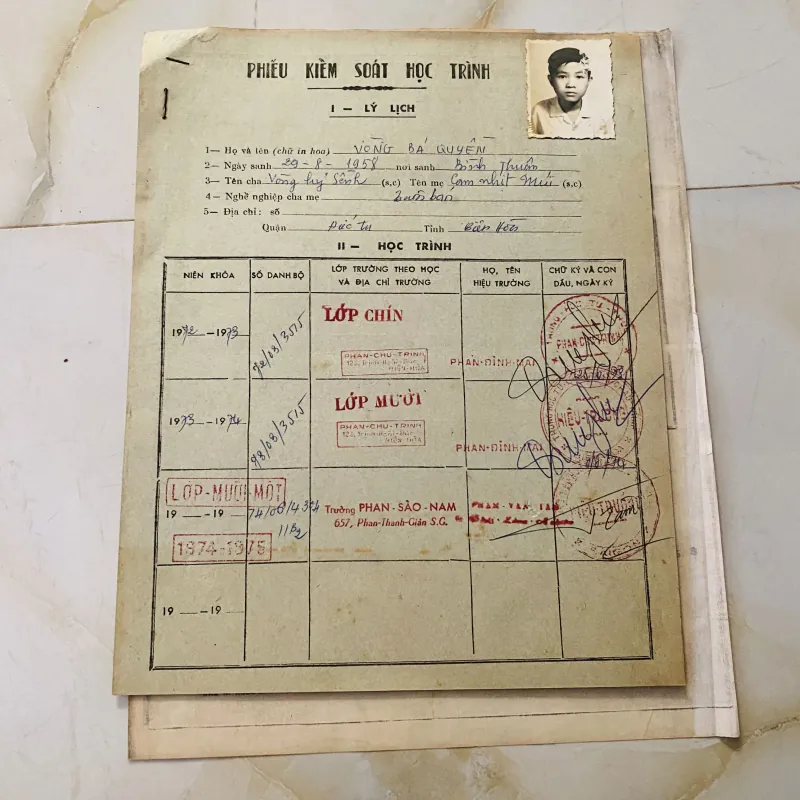 PHIẾU KIỂM SOÁT HỌC TRÌNH
I — LÝ LỊCH
1— Họ và tên (chữ in hoa) VÒNG BÁ QUYỀN
2— Ngày sanh 29-8-1958 nơi sanh Bình Thuận
3— Tên cha Vòng Sềnh (s,c) Tên mẹ Cam nhựt Múi (s,c)
4— Nghề nghiệp cha mẹ buôn bán
5— Địa chỉ: số
Quận Đức tu Tỉnh Biên Hòa
II — HỌC TRÌNH
NIÊN KHÓA SỐ DANH BỘ LỚP TRƯỜNG THEO HỌC VÀ ĐỊA CHỈ TRƯỜNG HỌ, TÊN HIỆU TRƯỞNG CHỮ KÝ VÀ CON DẤU, NGÀY KÝ
1972 —1973 72/08/3515 LỚP CHÍN
PHAN-CHU-TRINH
BIÊN-HÒA
PHAN-ĐÌNH-MAI
PHAN-CHU-TRINH
1973 —1974 73/08/3515 LỚP MƯỜI
PHAN-CHU-TRINH
BIÊN-HÒA
PHAN-ĐÌNH-MAI
HIỆU-TRƯỞNG
LỚP-MƯỜI-MỘT
19 —19 74/08/4324
11B2
Trường PHAN-SÀO-NAM
657, Phan-Thanh-Giản S.G.
1974-1975
19 —19